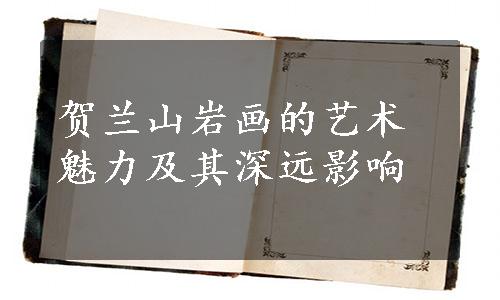 贺兰山岩画的艺术
魅力及其深远影响